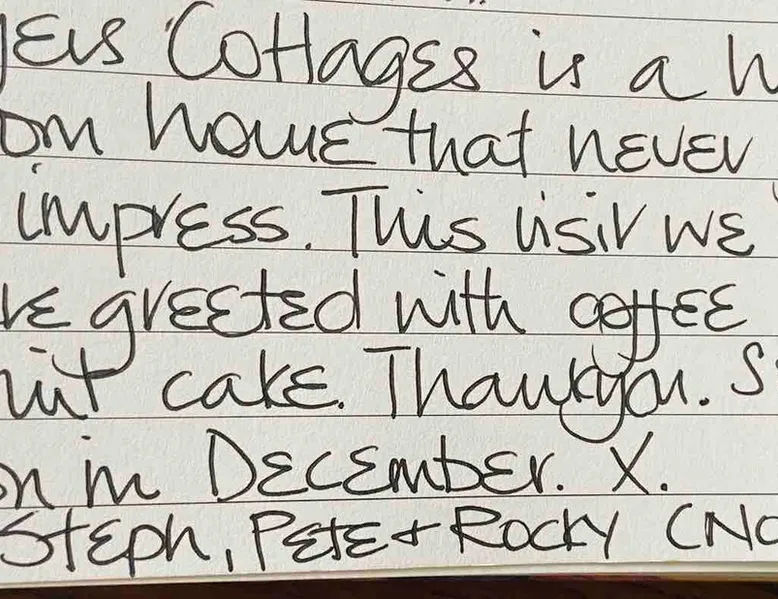 Cottages is a
home that never
impress. This visit we
greeted with coffee
cake. Thankyou.
in December. X.
Steph, Pete + Rocky